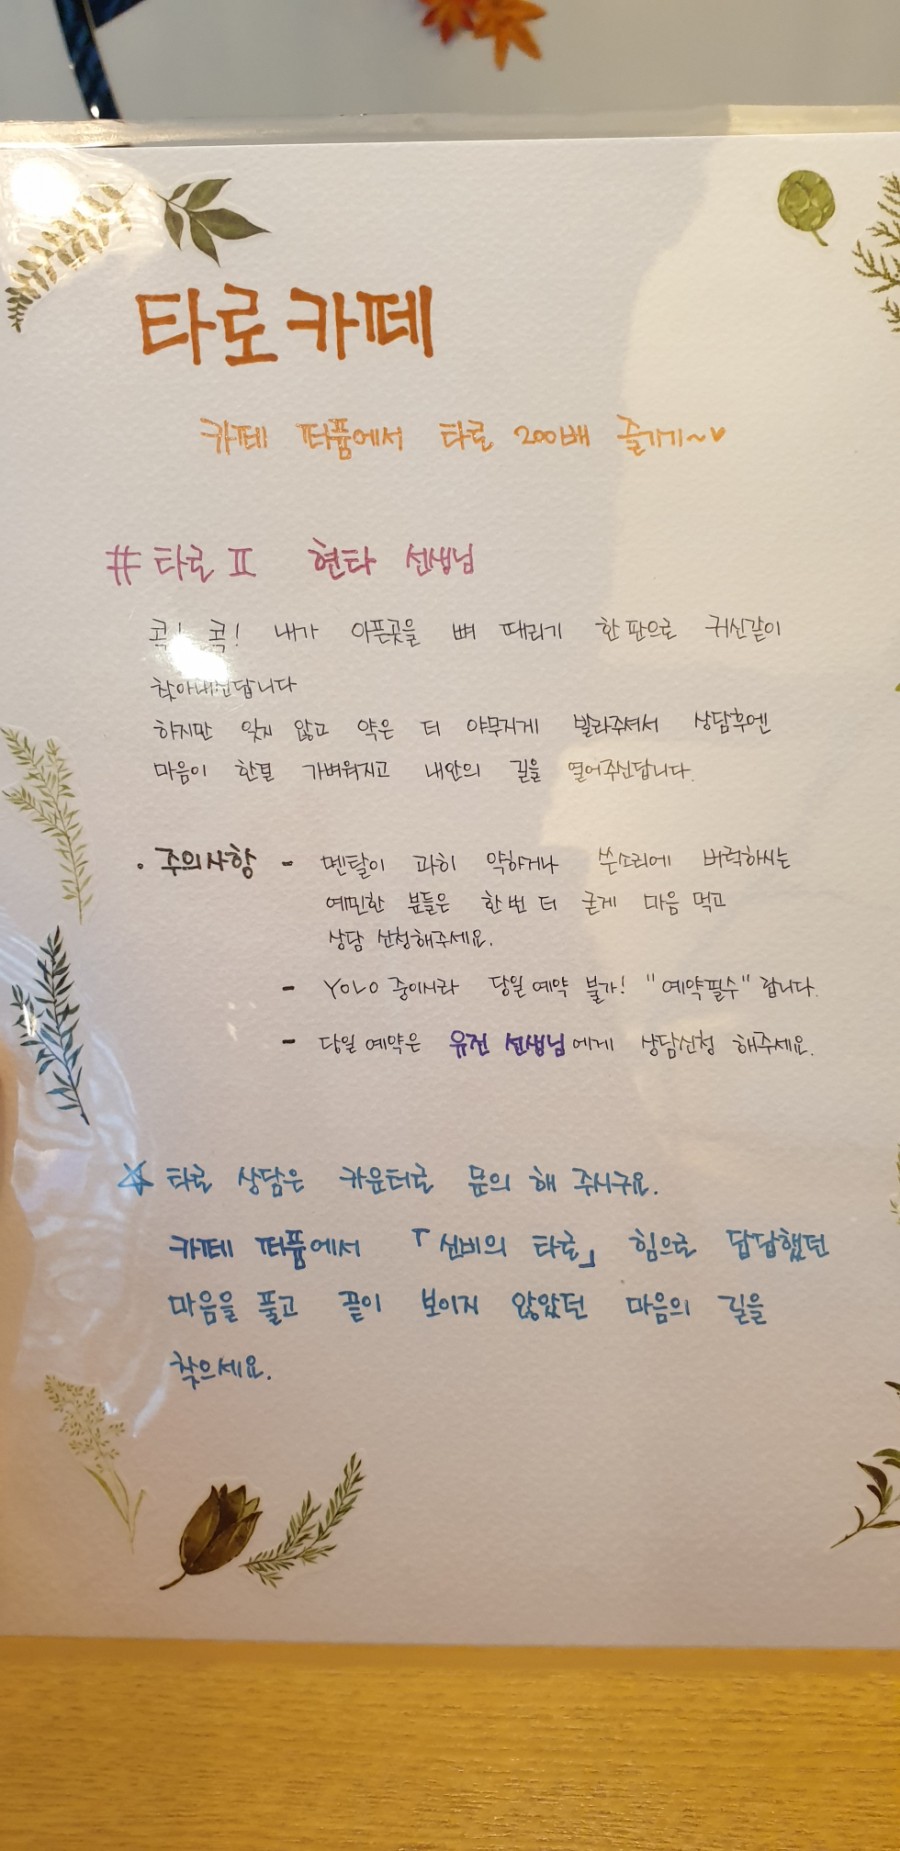 타로카페
카페 퍼퓸에서 타로 200배 즐기기~♥
# 타로 Ⅱ 현타 선생님
콕! 콕! 내가 아픈곳을 뼈 때리기 한판으로 귀신같이
찾아내신답니다
하지만 잊지 않고 약은 더 야무지게 발라주셔서 상담후엔
마음이 한결 가벼워지고 내안의 길을 열어주신답니다.
· 주의사항 - 멘탈이 과히 약하거나 쓴소리에 버럭하시는
예민한 분들은 한번 더 굳게 마음 먹고
상담 신청해주세요.
- YOLO 중이시라 당일 예약 불가! "예약필수" 랍니다.
- 당일 예약은 유진 선생님에게 상담신청 해주세요.
☆ 타로 상담은 카운터로 문의 해 주시구요.
카페 퍼퓸에서 「선비의 타로」 힘으로 답답했던
마음을 풀고 끝이 보이지 않았던 마음의 길을
찾으세요.